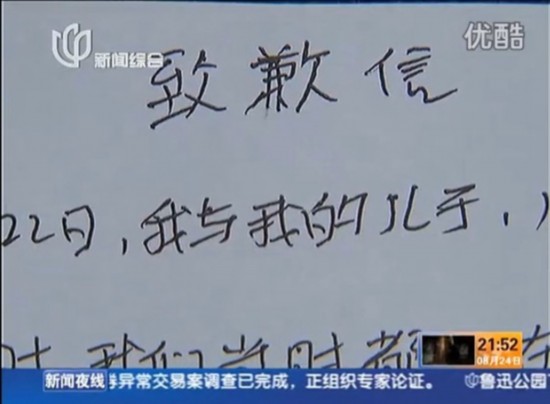 新闻综合
优酷
致歉信
22日,我与我的儿子,
时 我们当时都 在
21:52
08月24日
新闻夜线 券异常交易案调查已完成，正组织专家论证。 鲁迅公园